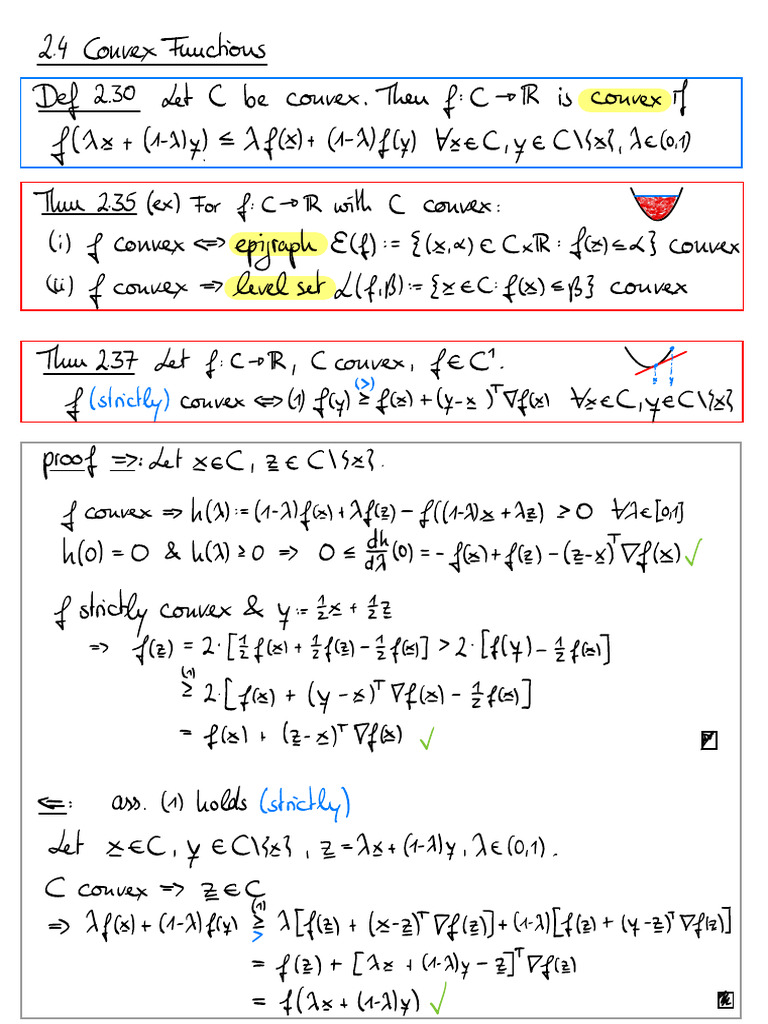 2.4 Convex Functions
Def 2.30 Let C be convex. Then f: C → ℝ is convex if
f(λx + (1-λ)y) ≤ λf(x) + (1-λ)f(y) ∀x∈C, y∈C\{x}, λ∈(0,1)
Thm 2.35 (ex) For f: C→ℝ with C convex:
(i) f convex ⇔ epigraph ℰ(f) := {(x,α) ∈ C×ℝ : f(x) ≤ α} convex
(ii) f convex ⇒ level set ℒ(f,β) := {x∈C: f(x) ≤ β} convex
Thm 2.37 Let f: C→ℝ, C convex, f∈C¹.
f (strictly) convex ⇔ (1) f(y) ≥ (>) f(x) + (y-x)ᵀ∇f(x) ∀x∈C, y∈C\{x}
proof ⇒: Let x∈C, z∈C\{x}.
f convex ⇒ h(λ) := (1-λ)f(x) + λf(z) - f((1-λ)x + λz) ≥ 0 ∀λ∈[0,1]
h(0) = 0 & h(λ) ≥ 0 ⇒ 0 ≤ dh/dλ (0) = -f(x) + f(z) - (z-x)ᵀ∇f(x) ✓
f strictly convex & y := ½x + ½z
⇒ f(z) = 2·[½f(x) + ½f(z) - ½f(x)] > 2·[f(y) - ½f(x)]
(1) ≥ 2·[f(x) + (y-x)ᵀ∇f(x) - ½f(x)]
= f(x) + (z-x)ᵀ∇f(x) ✓
⇐: ass. (1) holds (strictly)
Let x∈C, y∈C\{x}, z = λx + (1-λ)y, λ∈(0,1).
C convex ⇒ z∈C
⇒ λf(x) + (1-λ)f(y) (1) ≥ > λ[f(z) + (x-z)ᵀ∇f(z)] + (1-λ)[f(z) + (y-z)ᵀ∇f(z)]
= f(z) + [λx + (1-λ)y - z]ᵀ∇f(z)
= f(λx + (1-λ)y) ✓